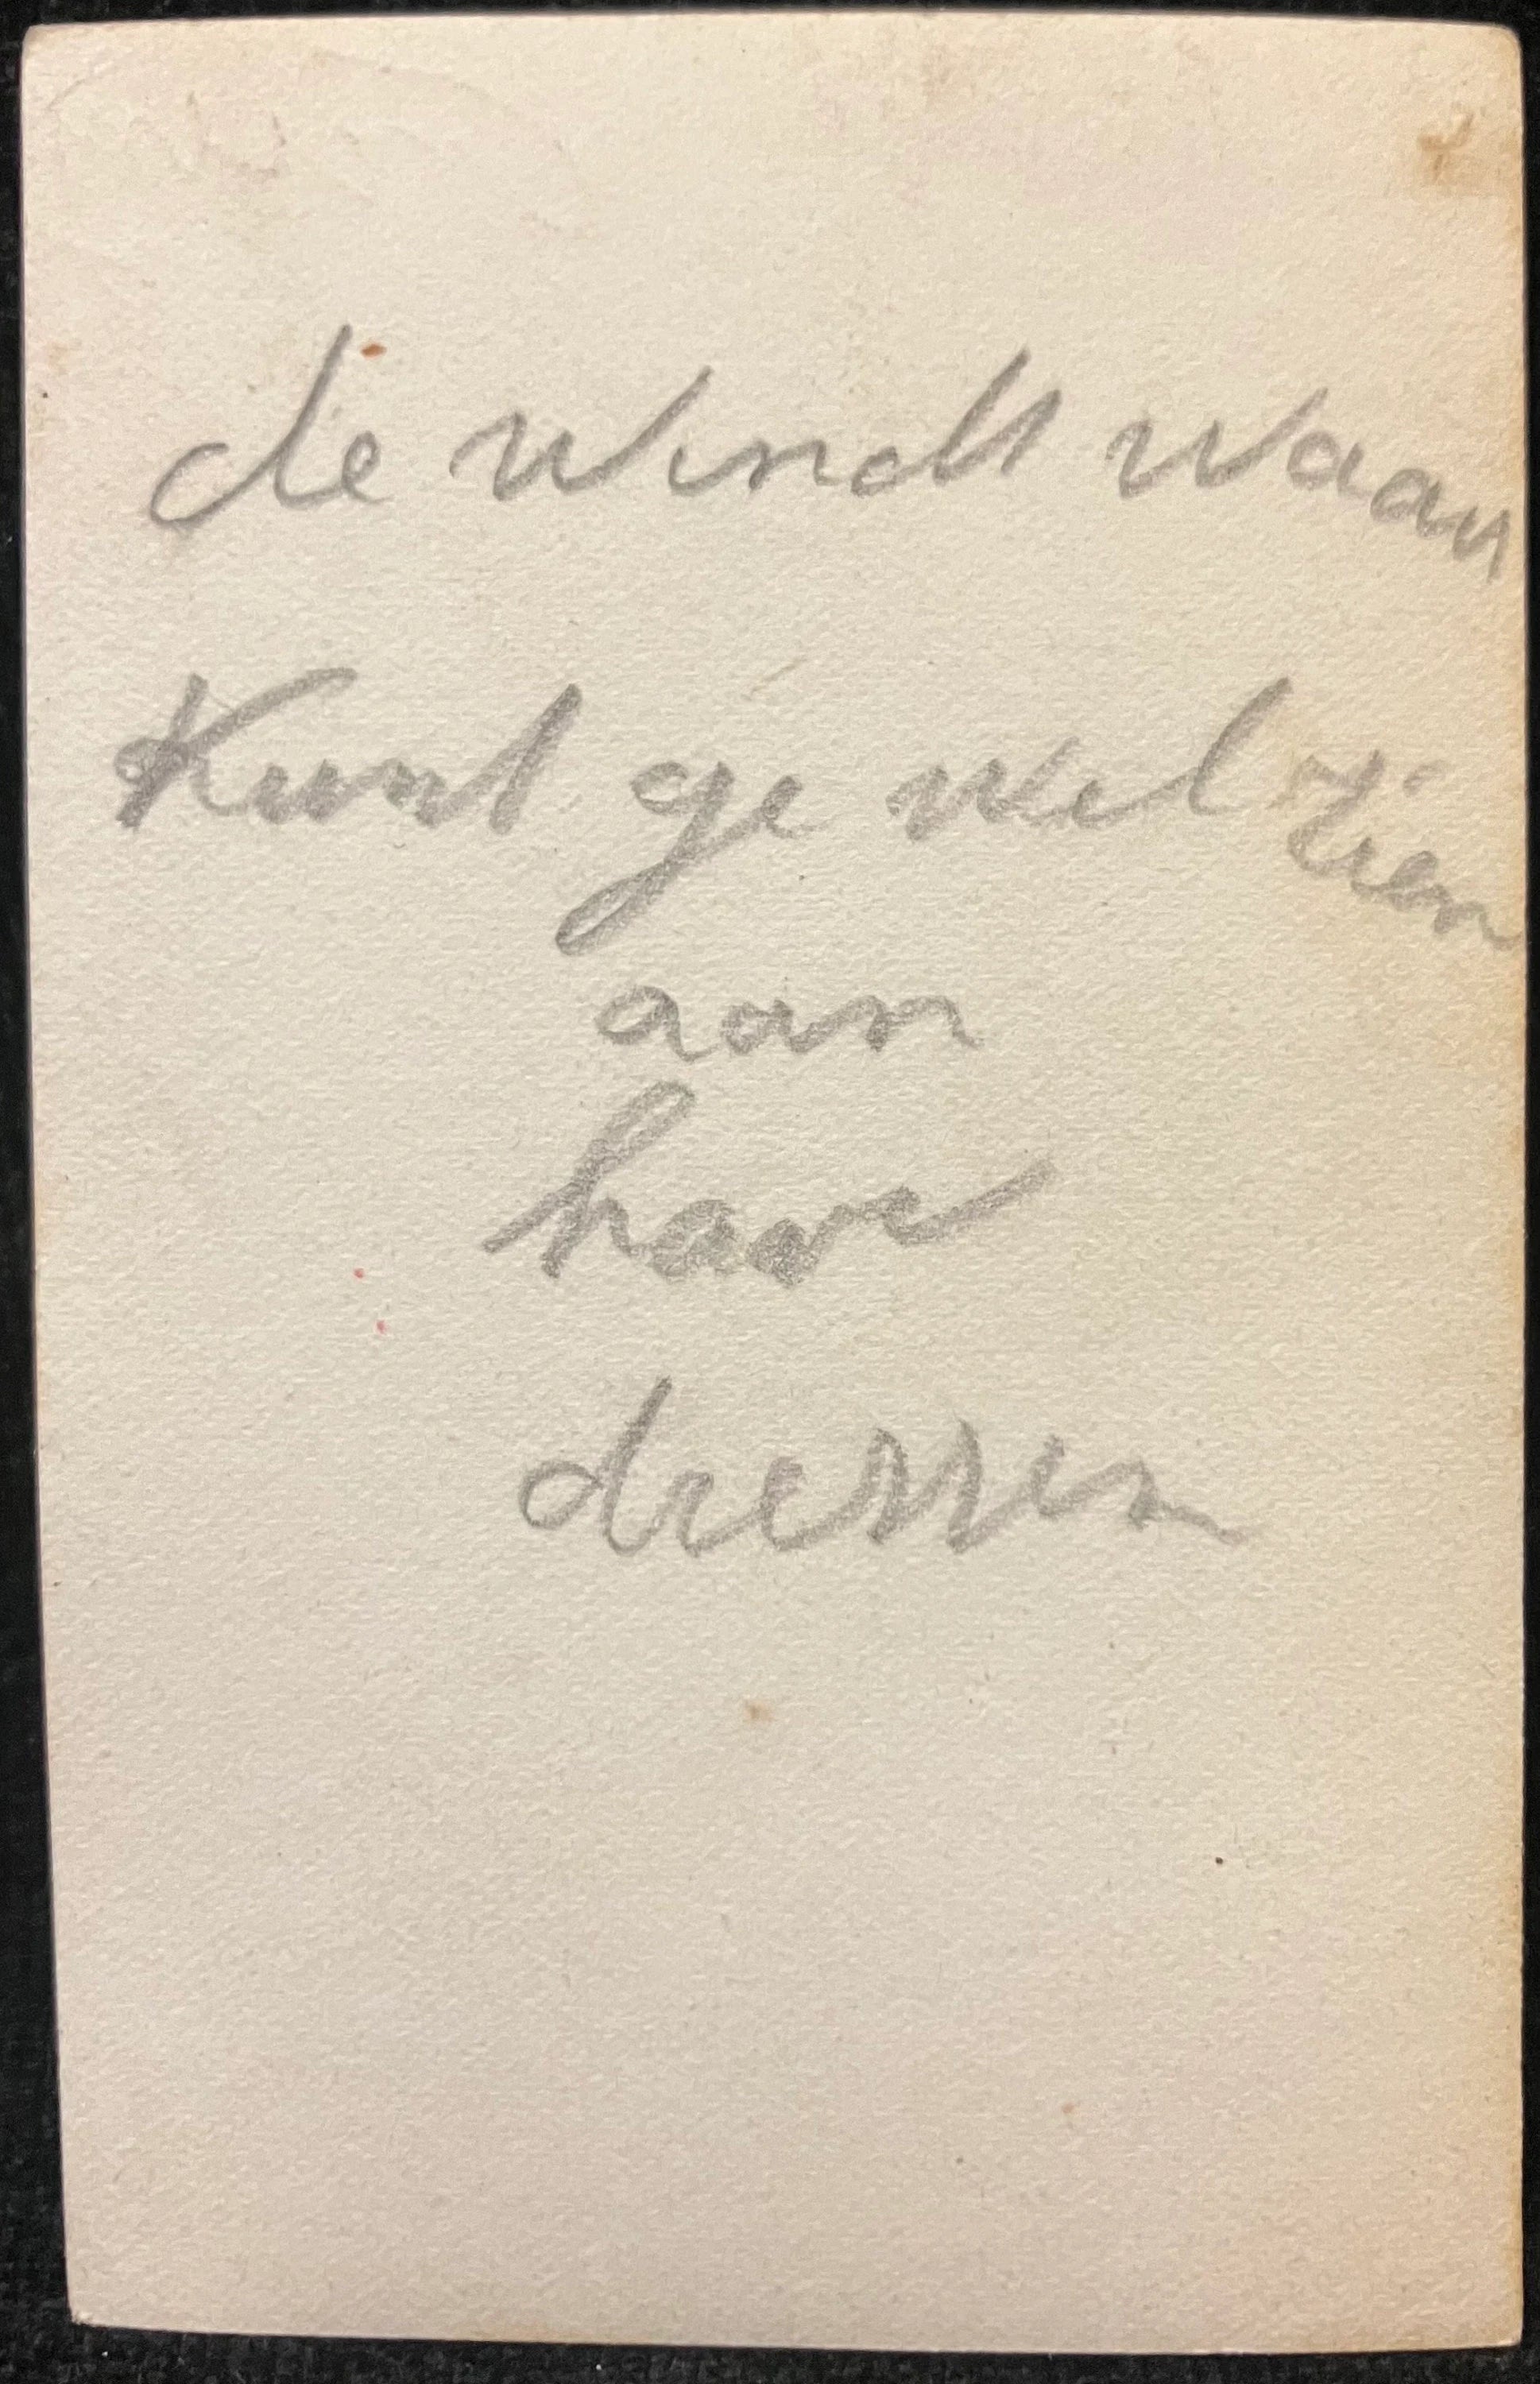 de windt waan
Kunt ge wel zien
aan
haar
dressen